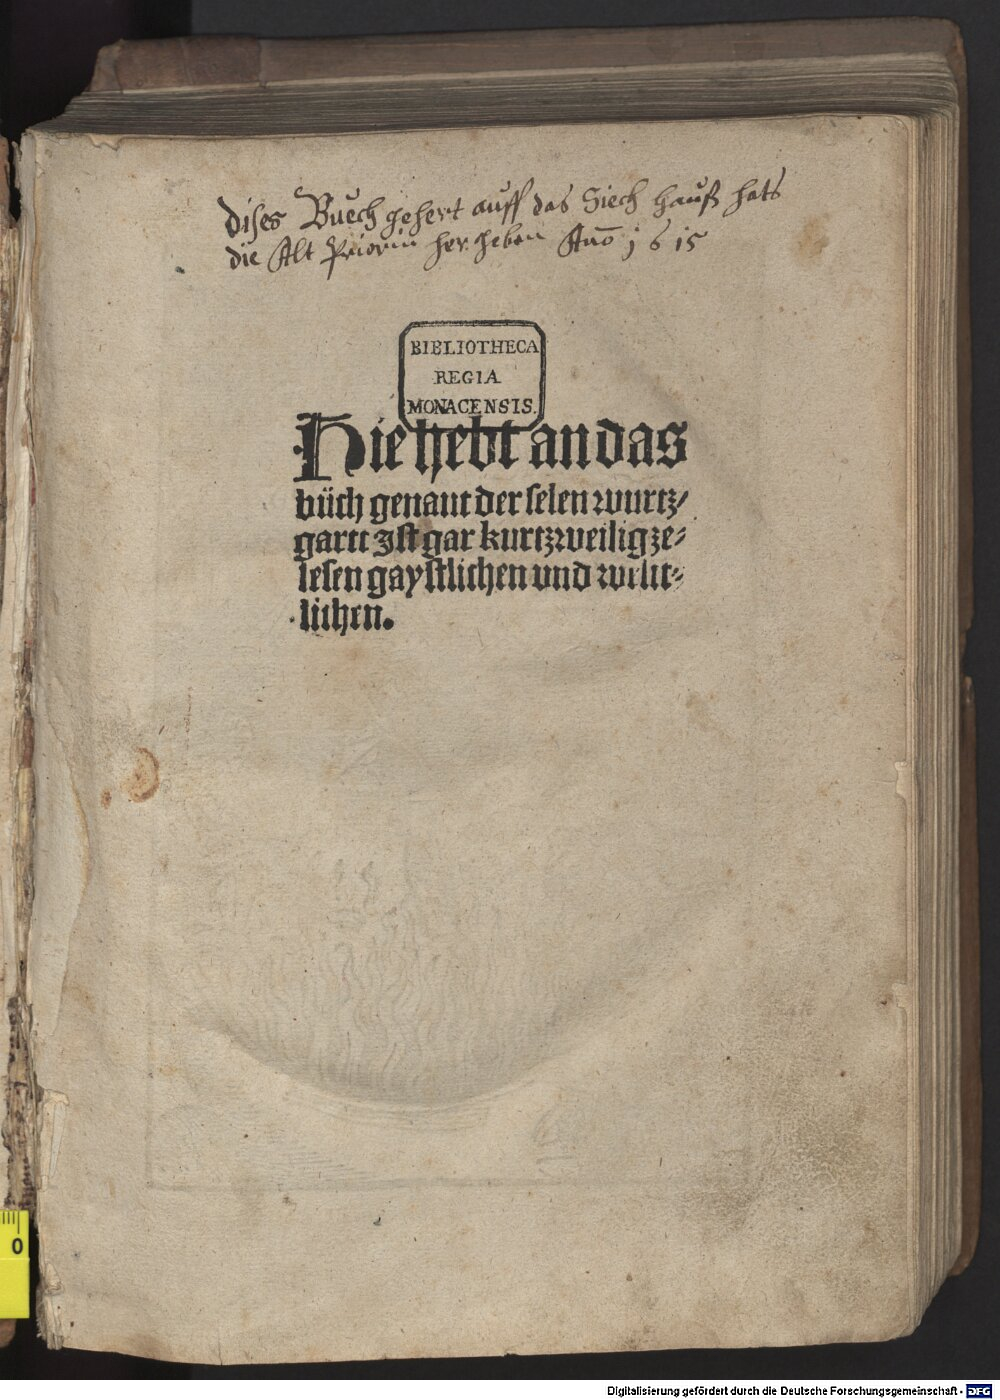 dises Buech gehert auff das Siech hauß hats
die Alt Priorin her geben Año 1615
BIBLIOTHECA
REGIA
MONACENSIS.
Hie hebt an das
bůch genant der selen wurtz⸗
gartt Ist gar kurtzweilig ze⸗
lesen gaystlichen und weltt⸗
lichen.
0
Digitalisierung gefördert durch die Deutsche Forschungsgemeinschaft - DFG